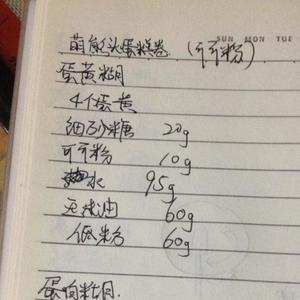 SUN MON TUE
萌熊头蛋糕卷 (可可粉)
蛋黄糊
4个蛋黄
细砂糖 20g
可可粉 10g
水 95g
无味油 60g
低粉 60g
蛋白糊.